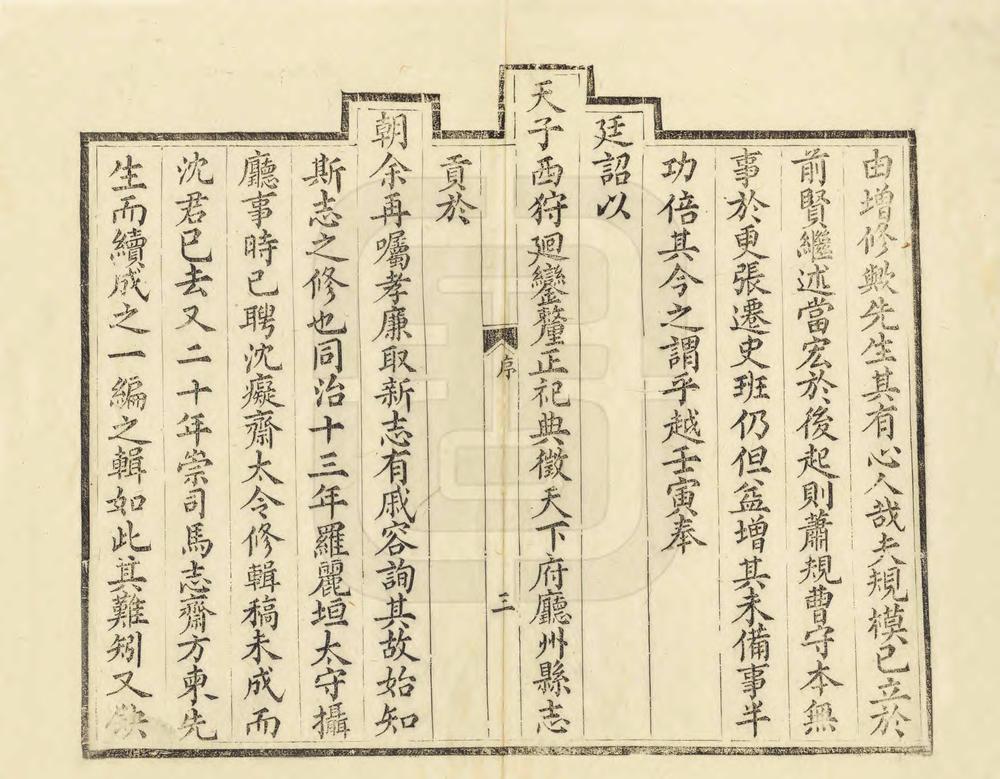 由增修歟先生其有心人哉夫規模已立於
前賢繼述當宏於後起則蕭規曹守本無
事於更張遷史班仍但益增其未備事半
功倍其今之謂乎越壬寅奉
廷詔以
天子西狩迴鑾釐正祀典徵天下府廳州縣志
序
三
貢於
朝余再囑孝廉取新志有戚容詢其故始知
斯志之修也同治十三年羅麗垣太守攝
廳事時已聘沈癡齋太令修輯稿未成而
沈君已去又二十年崇司馬志齋方柬先
生而續成之一編之輯如此其難矧又缺